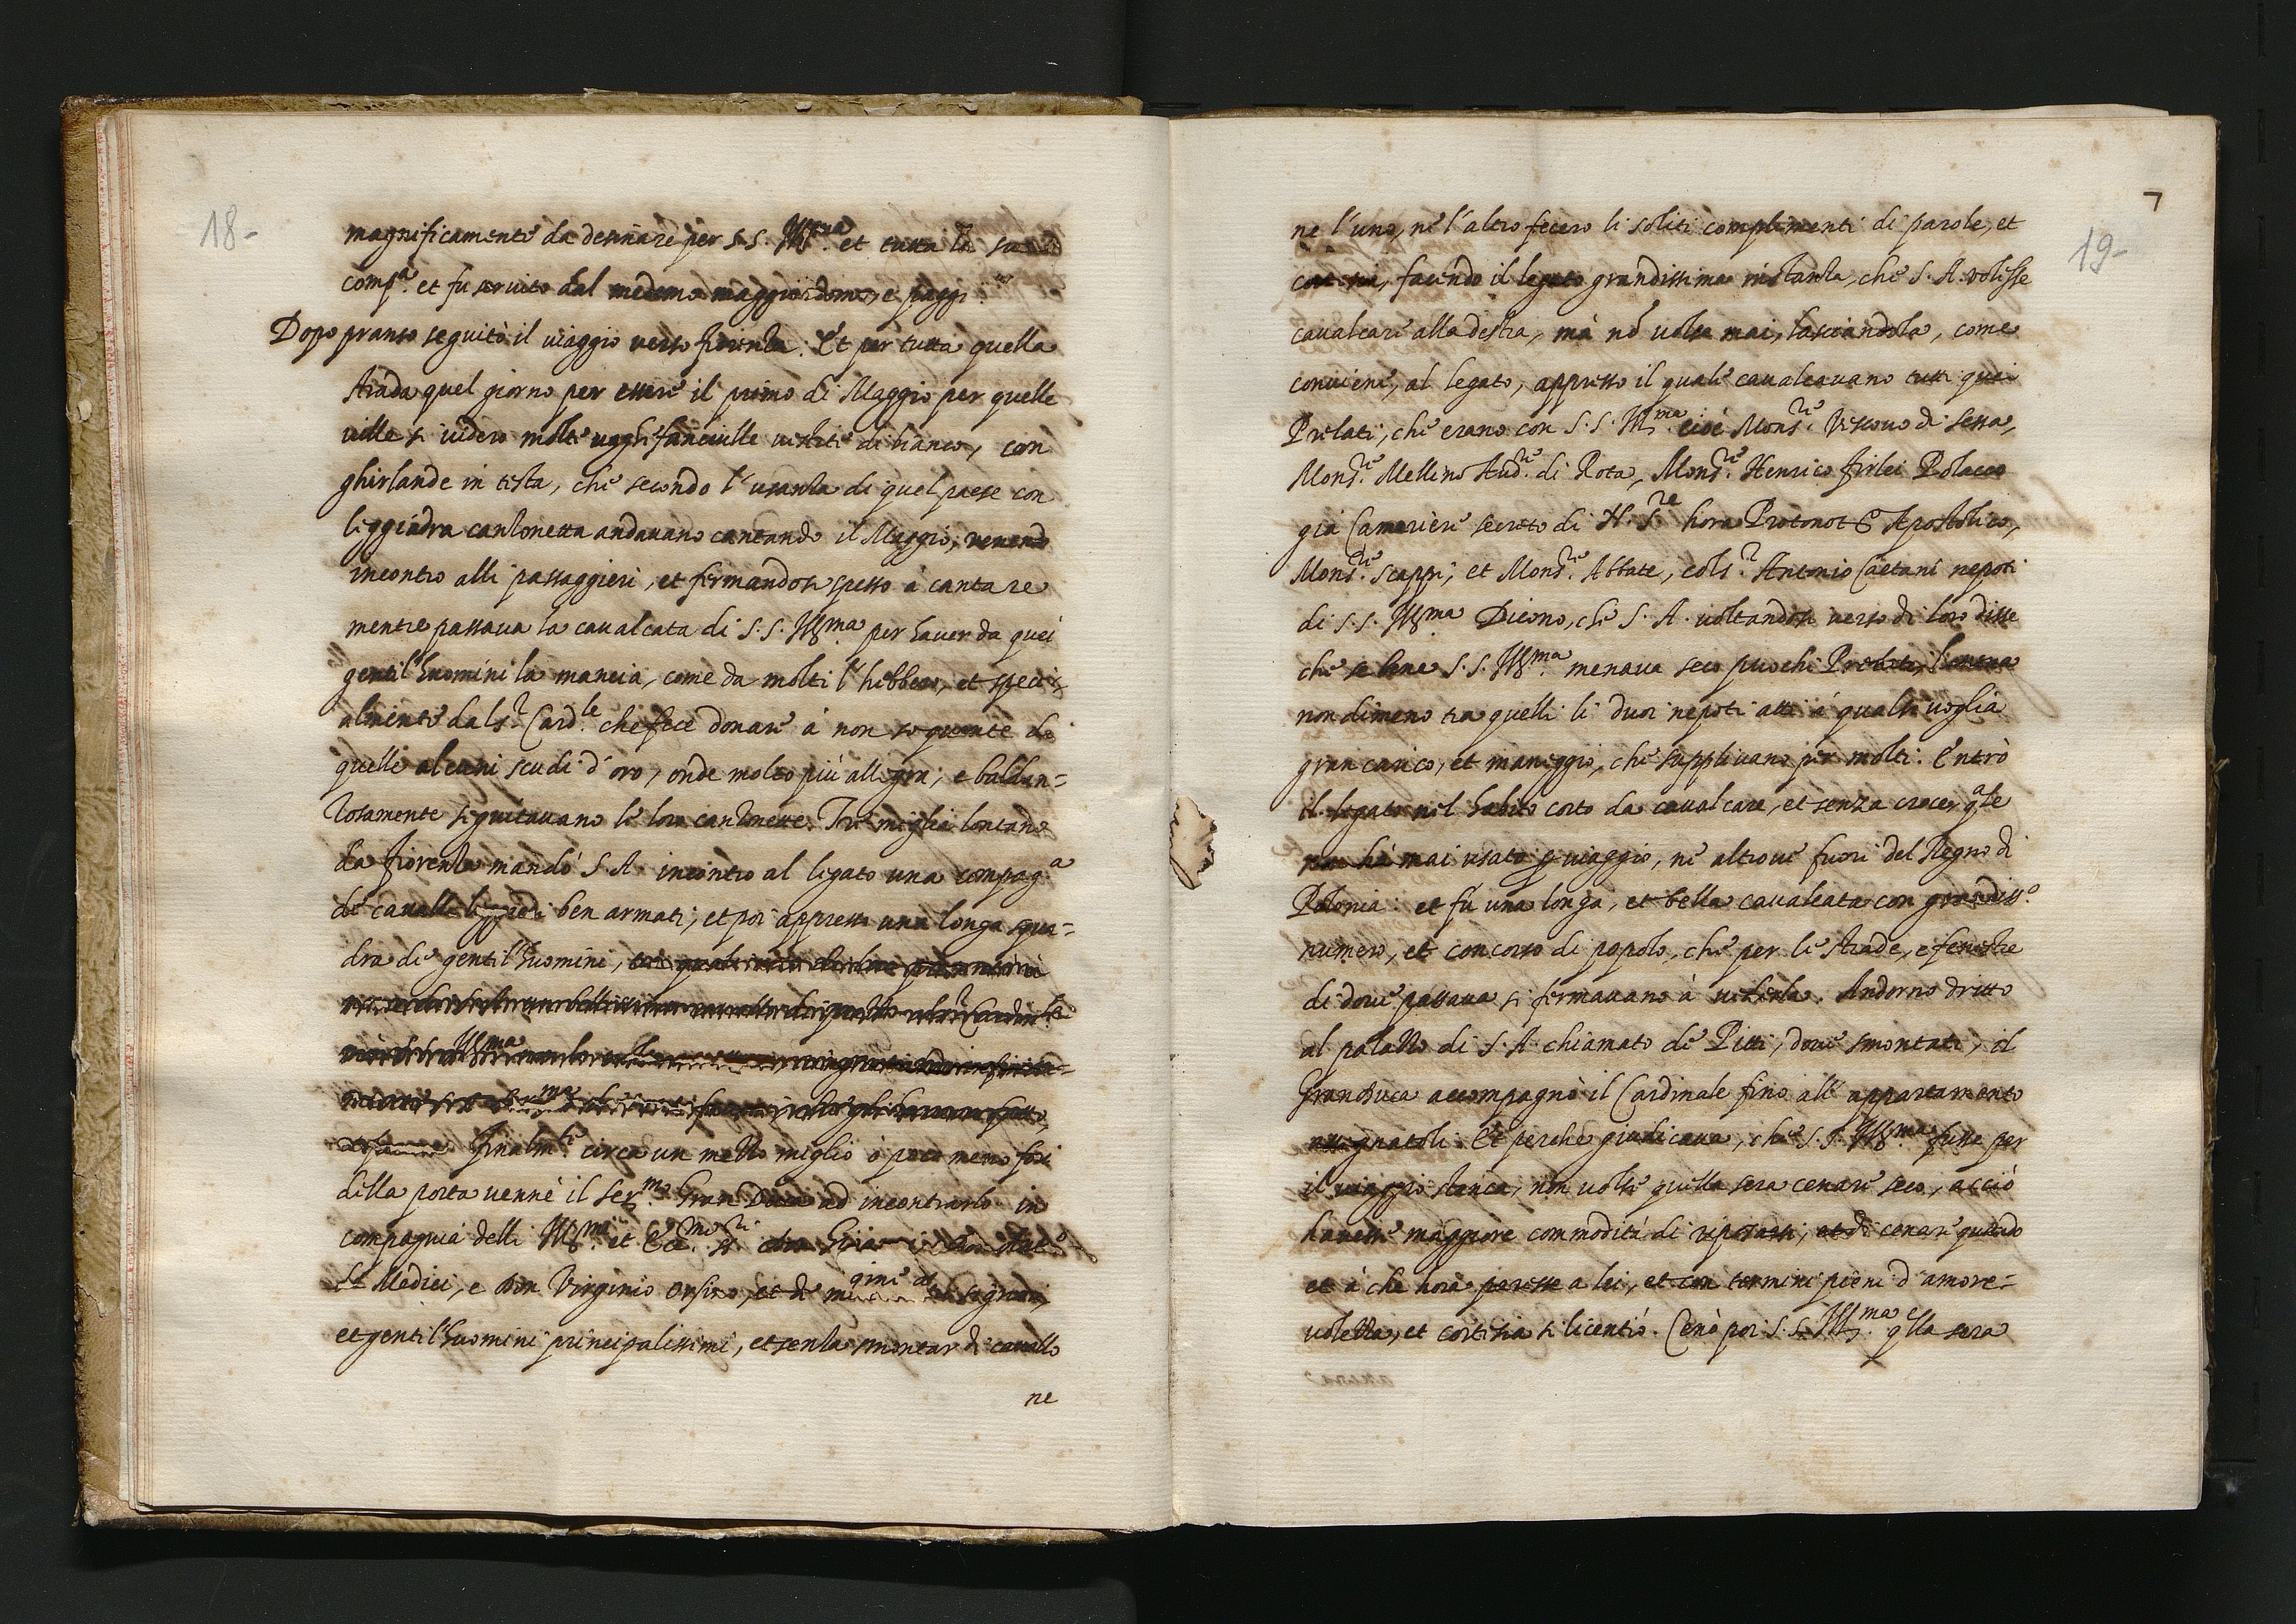 18-
magnificamente da desinare per S.S. Ill.ma et tutta la sua
comp.a et fu servito dal medemo maggiordomo, e paggi
Dopo pranso seguitò il viaggio verso fiorenza. Et per tutta quella
strada quel giorno per essere il primo di Maggio per quelle
ville si videro molte vaghe fanciulle vestite di bianco, con
ghirlande in testa, che secondo l'usanza di quel paese con
leggiadra canzonetta andavano cantando il Maggio, venendo
incontro alli passaggieri, et fermandosi spesso à cantare
mentre passava la cavalcata di S.S. Ill.ma per haver da quei
gentil'huomini la mancia, come da molti l'hebbero, et speci-
almente dal S.r Card.le che fece donare à non so quante di
quelle alcuni scudi d'oro, onde molto più allegra, e baldan=
zosamente seguitavano le loro canzonette. Tre miglia lontano
da fiorenza mandò S.A. incontro al legato una compag.a
de cavalli leggieri ben armati, et poi appresso una longa squa=
dra de gentil'huomini,
Finalm.te circa un mezzo miglio ò poco meno fori
della porta venne il Ser.mo Gran Duca ad incontrarlo in
compagnia delli Ill.mi et Ecc.mi S.ri
de Medici, e Don Virginio Orsino, et de signori,
et gentil'huomini principalissimi, et senza smontar di cavallo
ne
7
19-
ne l'uno, ne l'altro fecero li soliti complimenti di parole, et
cortesia, facendo il legato grandissima instanza, che S.A. volesse
cavalcare alla destra, mà nõ volse mai, lasciandola, come
conviene, al legato, appresso il quale cavalcavano tutti quei
Prelati, che erano con S.S. Ill.ma cioè Mons.re Vescovo di Sessa,
Mons.re Mellino Aud.re di Rota, Mons.re Henrico firlei Polacco
già Cameriere secreto di N.S.re hora Protonot.o Apostolico,
Mons.re Scappi, et Mons.re Abbate, col S.r Antonio Caetani nepoti
di S.S. Ill.ma Dicono, che S.A. voltandosi verso di loro disse
che se bene S.S. Ill.ma menava seco puochi Prelati,
non dimeno tra quelli li duoi nepoti atti à qualsivoglia
gran carico, et maneggio, che supplivano per molti. Entrò
il legato nel habito corto da cavalcare, et senza croce, q.le
non hà mai usato p viaggio, ne altrove fuori del Regno di
Polonia: et fù una longa, et bella cavalcata con grandiss.o
numero, et concorso di popolo, che per le strade, e fenestre
di dove passava si fermavano à vederla. Andorno dritto
al palazzo di S.A. chiamato de Pitti, dove smontati, il
Gran Duca accompagnò il Cardinale fino all'appartamento
assignatoli. Et perche giudicava, che S.S. Ill.ma fusse per
il viaggio stanca, non volse quella sera cenare seco, acciò
havesse maggiore commodità di riposarsi, et di cenare quãdo
et à che hora paresse a lei, et con termini pieni d'amore=
volezza, et cortesia si licentiò. Cenò poi S.S. Ill.ma q.lla sera